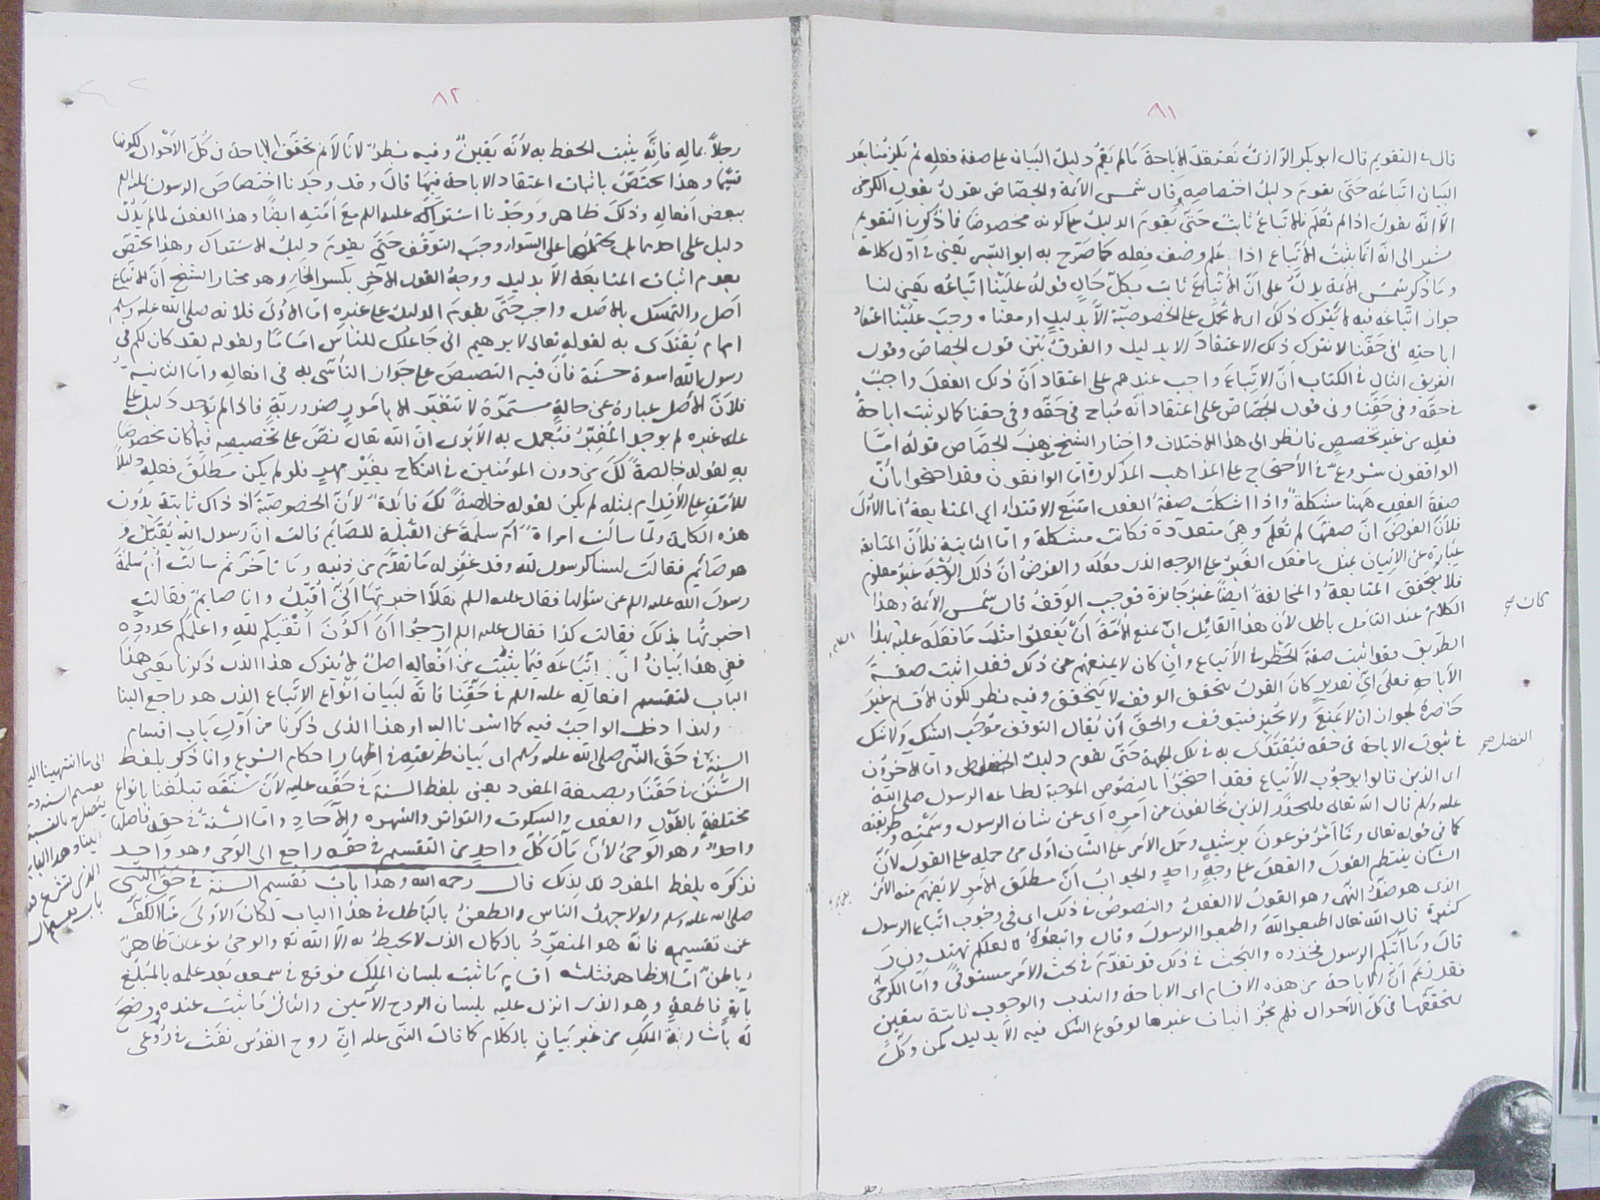 ٨١
قال في التقويم قال ابو بكر الرازي نعتقد الاباحة ما لم يقم دليل البيان على صفة فعله ثم يلزمنا بعد
البيان اتباعه حتى يقوم دليل اختصاصه وقال شمس الائمة والجصاص يقول بقول الكرخي
الا انه يقول اذا لم نعلم فالاتباع ثابت حتى يقوم الدليل على كونه مخصوصا فما ذكر في التقويم
يشير الى انه انما يثبت الاتباع اذا علم وصف فعله كما صرح به ابو اليسر يعني في اول كلامه
وما ذكر شمس الائمة يدل على ان الاتباع ثابت بكل حال قوله علينا اتباعه يعني لنا
جواز اتباعه فيه لا يترك ذلك اي لا يحمل على الخصوصية الا بدليل او معناه وجب علينا اعتقاد
اباحته في حقنا لا نترك ذلك الاعتقاد الا بدليل والفرق بين قول الجصاص وقول
الفريق الثاني في الكتاب ان الاتباع واجب عندهم على اعتقاد ان ذلك الفعل واجب
في حقه وفي حقنا وفي قول الجصاص على اعتقاد انه مباح في حقه وفي حقنا كما لو ثبت اباحة
فعله من غير تخصيص فانظر الى هذا الاختلاف واختار الشيخ مذهب الجصاص قوله اما
الواقفون شروع في الاحتجاج على المذاهب المذكورة اما الواقفون فقد احتجوا بأن
صفة الفعل ههنا مشكلة واذا اشكلت صفة الفعل امتنع الاقتداء اي المتابعة اما الاول
فلأن الفرض ان صفتها لم تعلم وهي متعددة فكانت مشكلة واما الثانية فلأن المتابعة
عبارة عن الاتيان بمثل ما فعل الغير على الوجه الذي فعله والفرض ان ذلك الوجه غير معلوم
فلا تتحقق المتابعة والمخالفة ايضا غير جائزة فوجب الوقف قال شمس الائمة وهذا
كان صح
الكلام عند التأمل باطل لأن هذا القائل ان يمنع الامة أن يفعلوا مثل ما فعله عليه بهذا
الطريق فقد اثبت صفة الحظر في الاتباع وان كان لا يمنعهم عن ذلك فقد اثبت صفة
الاباحة فعلى اي تقدير كان القول بتحقق الوقف لا يتحقق وفيه نظر لكون الاقسام غير
حاصرة لجواز ان لا يمنع ولا يجيز فيتوقف والحق أن يقال التوقف موجب الشك ولا شك
في ثبوت الاباحة في حقه فيقتدى به في تلك الجهة حتى يقوم دليل واما الآخرون
الفصل صح
اي الذين قالوا بوجوب الاتباع فقد احتجوا بالنصوص الموجبة لطاعة الرسول صلى الله
عليه وسلم قال الله تعالى فليحذر الذين يخالفون عن أمره اي عن شان الرسول وسمته وطريقته
كما في قوله تعالى وما أمر فرعون برشيد وحمل الأمر على الشان أولى من حمله على القول لأن
الشان ينتظم القول والفعل على وجه واحد والجواب أن مطلق الأمر لا يفهم منه الأمر
الذي هو ضد النهى وهو القول لا الفعل والنصوص في ذلك اي في وجوب اتباع الرسول
كثيرة قال الله تعالى اطيعوا الله واطيعوا الرسول وقال واتبعوه لعلكم تهتدون
قال وما آتيكم الرسول فخذوه والبحث في ذلك قد تقدم في بحث الأمر مستوفى واما الكرخي
فقد زعم أن الاباحة من هذه الاقسام اي الاباحة والندب والوجوب ثابتة بيقين
لتحققها في كل الأحوال فلم يجز اثبات غيرها لوقوع الشك فيه الا بدليل كمن وكل
رجلا
٨٢
رجلا بماله فانه يثبت الحفظ به لأنه يقين وفيه نظر لأنا لا نم تحقق الاباحة في كل الأحوال لكونها
قسما وهذا يختص باثبات اعتقاد الاباحة فيها قال وقد وجدنا اختصاص الرسول عليه السلم
ببعض افعاله وذلك ظاهر ووجدنا اشتراكه عليه السلم مع أمته ايضا وهذا الفعل لما لم يدل
دليل على احدهما بل على السواء وجب التوقف حتى يقوم دليل الاشتراك وهذا يختص
بعدم اثبات المتابعة الا بدليل ووجه القول الآخر بكسر الخاء وهو مختار الشيخ ان الاتباع
اصل والتمسك بالاصل واجب حتى يقوم الدليل على غيره اما الاولى فلانه صلى الله عليه وسلم
امام يقتدى به لقوله تعالى لابرهيم انى جاعلك للناس اماما ولقوله لقد كان لكم في
رسول الله اسوة حسنة فان فيه التنصيص على جواز التأسى به في افعاله واما الثانية
فلأن الأصل عبارة عن حالة مستمرة لا تتغير الا بأمور ضرورية فاذا لم يوجد دليل على
على غيره لم يوجد المغير فيعمل به الا يرى ان الله تعالى نص على تخصيصه فيما كان مخصوصا
به لقوله خالصة لك من دون المؤمنين في النكاح بغير مهر فلو لم يكن مطلق فعله دليلا
للامة على الاقدام بمثله لم يكن لقوله خالصة لك فائدة لأن الخصوصية اذ ذاك ثابتة بدون
هذه الكلمة ولما سألت امرأة أم سلمة عن القبلة للصائم قالت ان رسول الله يقبل و
هو صائم فقالت لسنا كرسول الله وقد غفر له ما تقدم من ذنبه وما تأخر ثم سألت أم سلمة
رسول الله عليه السلم عن سؤالها فقال عليه السلم هلا اخبرتها انى أقبل وانا صايم فقالت
اخبرتها بذلك فقالت كذا فقال عليه السلم ارجوا أن أكون أتقيكم لله واعلمكم بحدوده
ففى هذا بيان ان اتباعه فيما يثبت من أفعاله اصل لا يترك هذا الذي ذكرنا يعنى هذا
الباب لتقسيم افعاله عليه السلم في حقنا فانه لبيان انواع الاتباع الذي هو راجع الينا
ولهذا الواجب فيه كما اشرنا اليه او هذا الذي ذكرنا من أول باب اقسام
السنة في حق النبي صلى الله عليه وسلم اى بيان طريقته في اظهار احكام الشرع وانما ذكر بلفظ
السنن في حقنا وبصيغة المفرد يعنى بلفظ السنة في حقه عليه لأن سنته تبلغنا بانواع
مختلفة بالقول والفعل والسكوت والتواتر والشهرة والآحاد واما السنة في حقه فاصلها
واحد وهو الوحى لأن مآل كل واحد من التقسيم في حقه راجع الى الوحى وهو واحد
فذكره بلفظ المفرد لذلك قال رحمه الله وهذا باب تقسيم السنة في حق النبي
صلى الله عليه وسلم ولولا جهل الناس والطعن بالباطل في هذا الباب لكان الأولى منا الكف
عن تقسيمه فانه هو المنفرد بالكمال الذي لا يحيط به الا الله تع والوحى نوعان ظاهر
وباطن اما الظاهر فثلثة اقسام ما ثبت بلسان الملك فوقع في سمعه بعد علمه بالمبلغ
بآية قاطعة وهو الذي انزل عليه بلسان الروح الأمين والثاني ما ثبت عنده ووضح
له باشارة الملك من غير بيان بالكلام كما قال النبي عليه ان روح القدس نفث في روعى